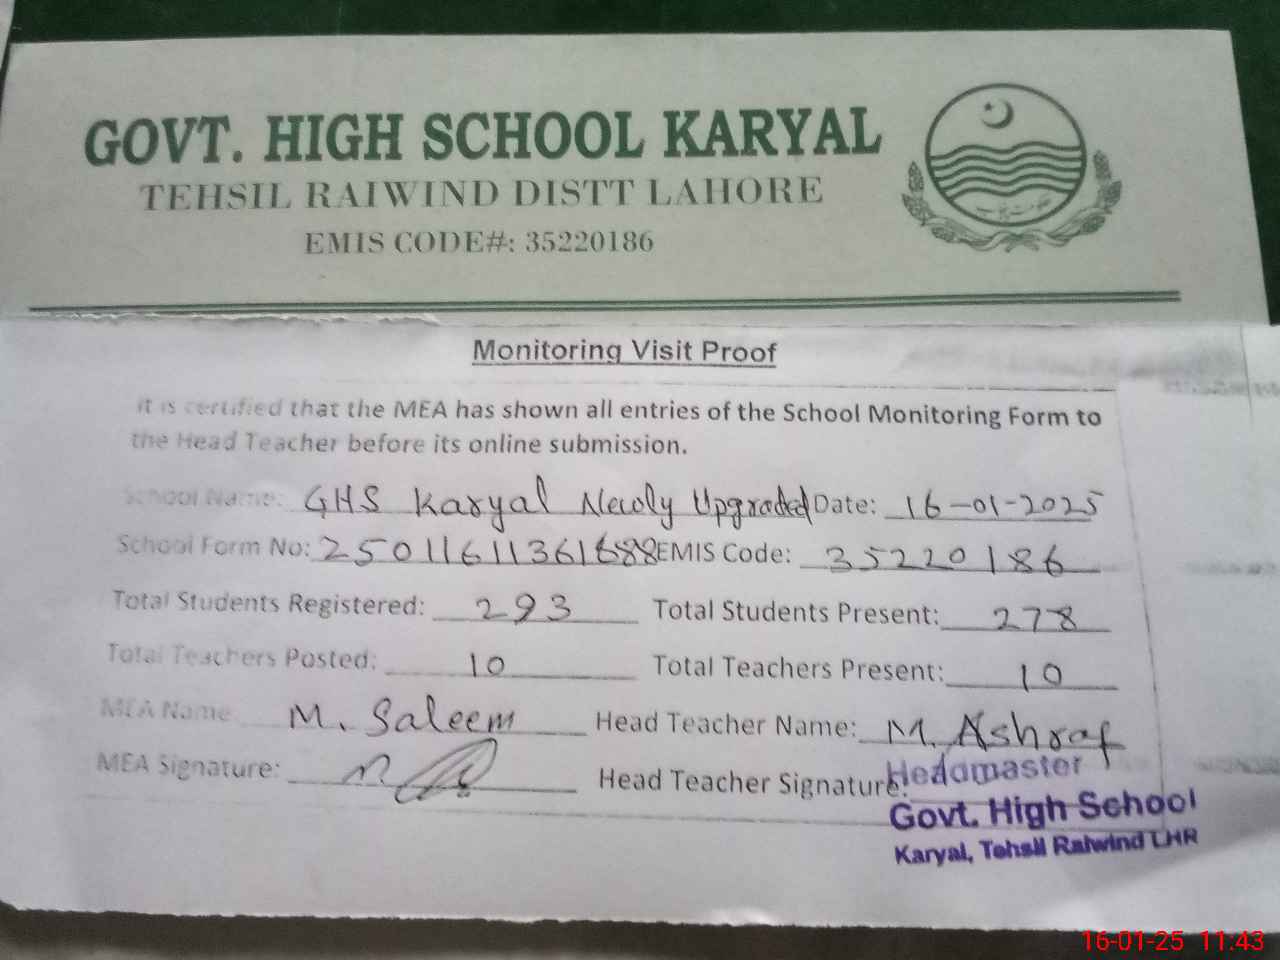 GOVT. HIGH SCHOOL KARYAL
TEHSIL RAIWIND DISTT LAHORE
EMIS CODE#: 35220186
Monitoring Visit Proof
It is certified that the MEA has shown all entries of the School Monitoring Form to
the Head Teacher before its online submission.
School Name: GHS Karyal Newly Upgraded Date: 16-01-2025
School Form No: 25011611361688 EMIS Code: 35220186
Total Students Registered: 293 Total Students Present: 278
Total Teachers Posted: 10 Total Teachers Present: 10
MEA Name M. Saleem Head Teacher Name: M. Ashraf
MEA Signature: Head Teacher Signature:
Headmaster
Govt. High School
Karyal, Tehsil Raiwind LHR
16-01-25 11:43